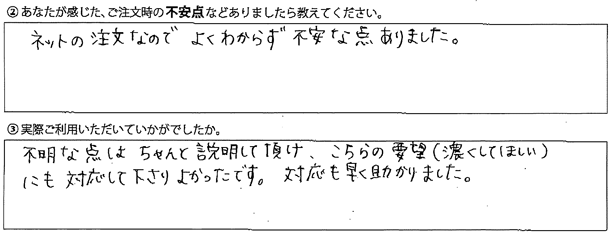 ②あなたが感じた、ご注文時の不安点などありましたら教えてください。
ネットの注文なので よくわからず 不安な点 ありました。
③実際ご利用いただいていかがでしたか。
不明な点は ちゃんと説明して頂け、こちらの要望(濃くしてほしい)
にも 対応して下さりよかったです。 対応も早く助かりました。